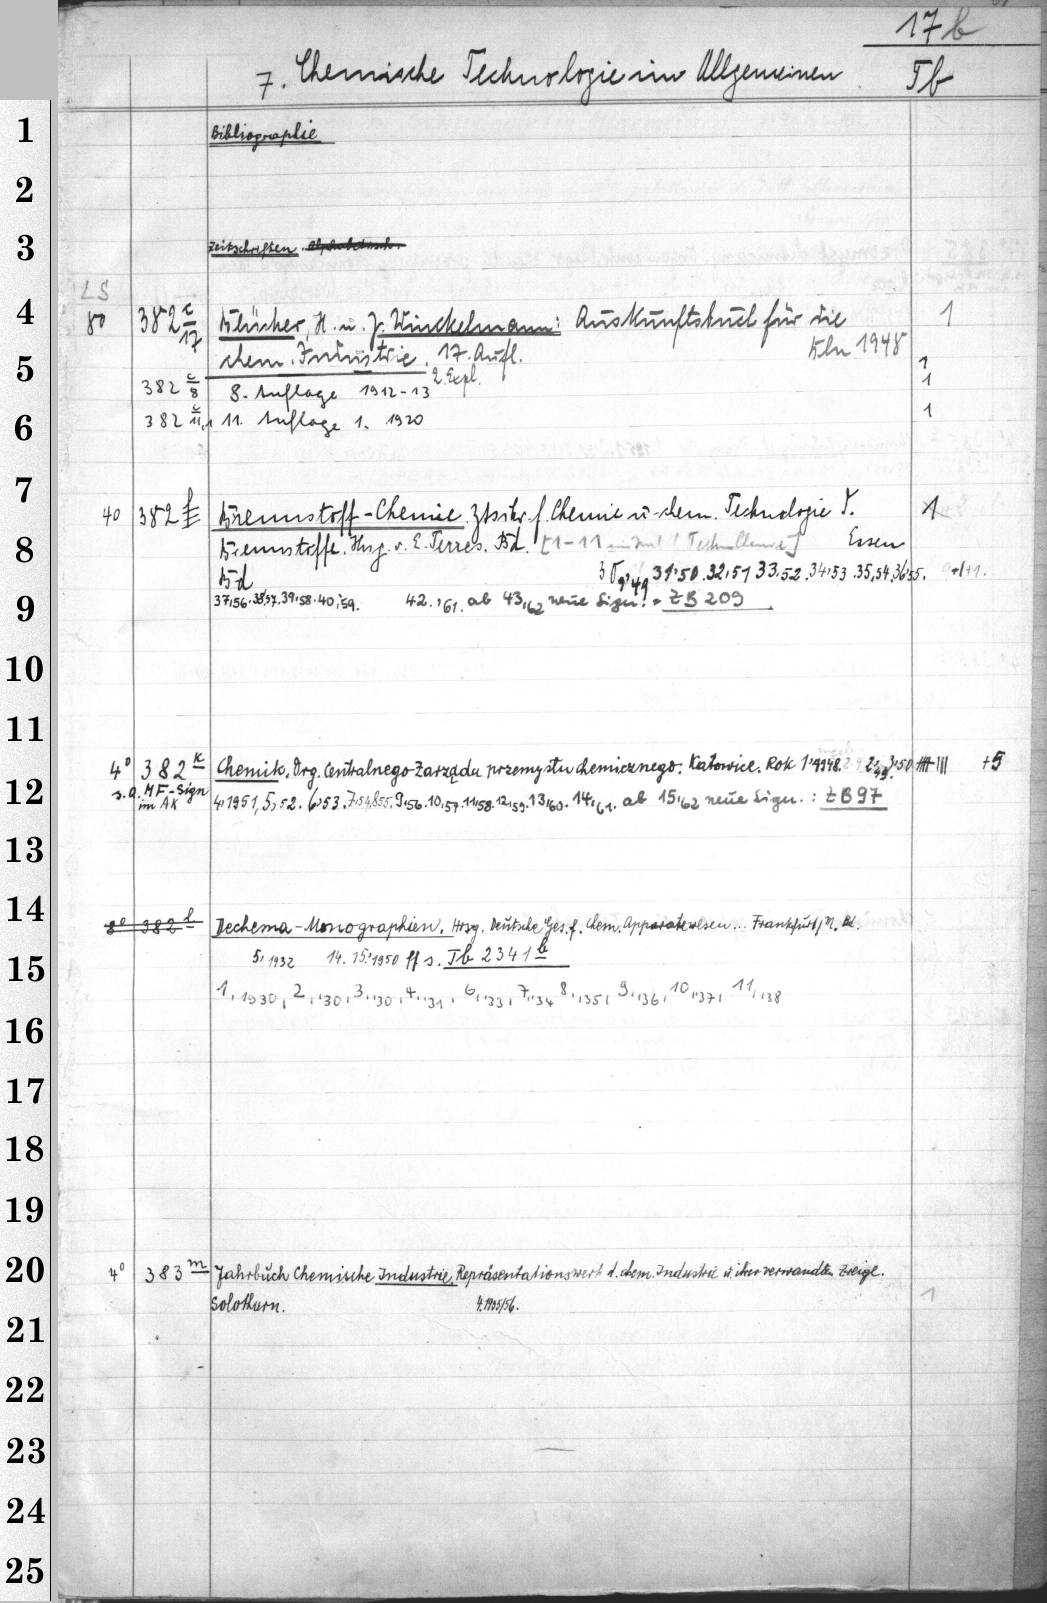 17 b
7. Chemische Technologie im Allgemeinen Tb
1
Bibliographie
2
3
Zeitschriften
LS
4
8° 382 c/17 Blücher, H. u. J. Winckelmann: Auskunftsbuch für die 1
chem. Industrie. 17. Aufl. Bln 1948
5
2. Expl. 1
382 c/8 8. Auflage 1912-13 1
382 c/11,1 11. Auflage 1. 1920 1
6
7
40 382 f Brennstoff-Chemie. Ztschr. f. Chemie u. chem. Technologie d. 1
8
Brennstoffe. Hrsg. v. E. Terres. Bd. [1-11 Essen
Bd 30,'49 31,'50. 32,'51 33,52. 34,'53. 35,54. 36,'55.
9
37,'56. 38,'57. 39,'58. 40,'59. 42.,'61. ab 43,'62 neue Sign.: ZB 209
10
11
4° 382 k Chemik. Org. Centralnego Zarządu przemysłu chemicznego. Katowice. Rok 1,1948. 2,49. 3,50 +5
12
s.a. MF-Sign 4,1951, 5,52. 6,53. 7,54, 8,55. 9,56. 10,57. 11,58. 12,59. 13,60. 14,'61. ab 15,'62 neue Sign.: ZB 97
im AK
13
14
8° 382 l Dechema-Monographien. Hrsg. Deutsche Ges. f. Chem. Apparatewesen... Frankfurt/M.
15
5,1932 14. 15,1950 ff s. Tb 2341 b
1,1930, 2,'30, 3,'30, 4,'31, 6,'33, 7,'34 8,'35, 9,'36, 10,'37, 11,'38
16
17
18
19
20
4° 383 m Jahrbuch Chemische Industrie. Repräsentationswerk d. chem. Industrie u. ihrer verwandten Zweige.
Solothurn. 4.1955/56. 1
21
22
23
24
25